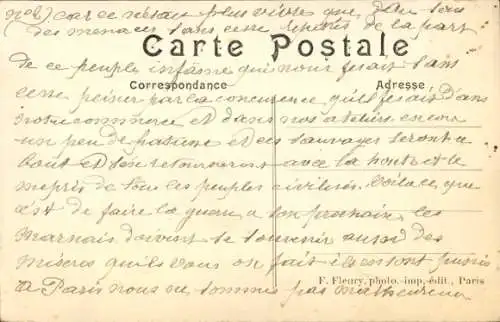 no 2) car ce n'était plus vivre que d'en
des menaces sans cesse de la part
Carte Postale
de ce peuple infâme qui nous fesait sans
Correspondance
Adresse
cesse peiner par la concurence qu'ils fesait dans
notre commerce et dans nos ateliers encore
un peu de patience et ces sauvages seront a
bout et s'en retourneront avec la honte et le
mepris de tous les peuples civilisés. Voila ce que
c'est de faire la guerre a son prochain les
marnais doivent se souvenir aussi des
miseres qu'ils vous on fait ils seront punis
F. Fleury, photo.-imp.-édit., Paris
A Paris nous ne sommes pas malheureux